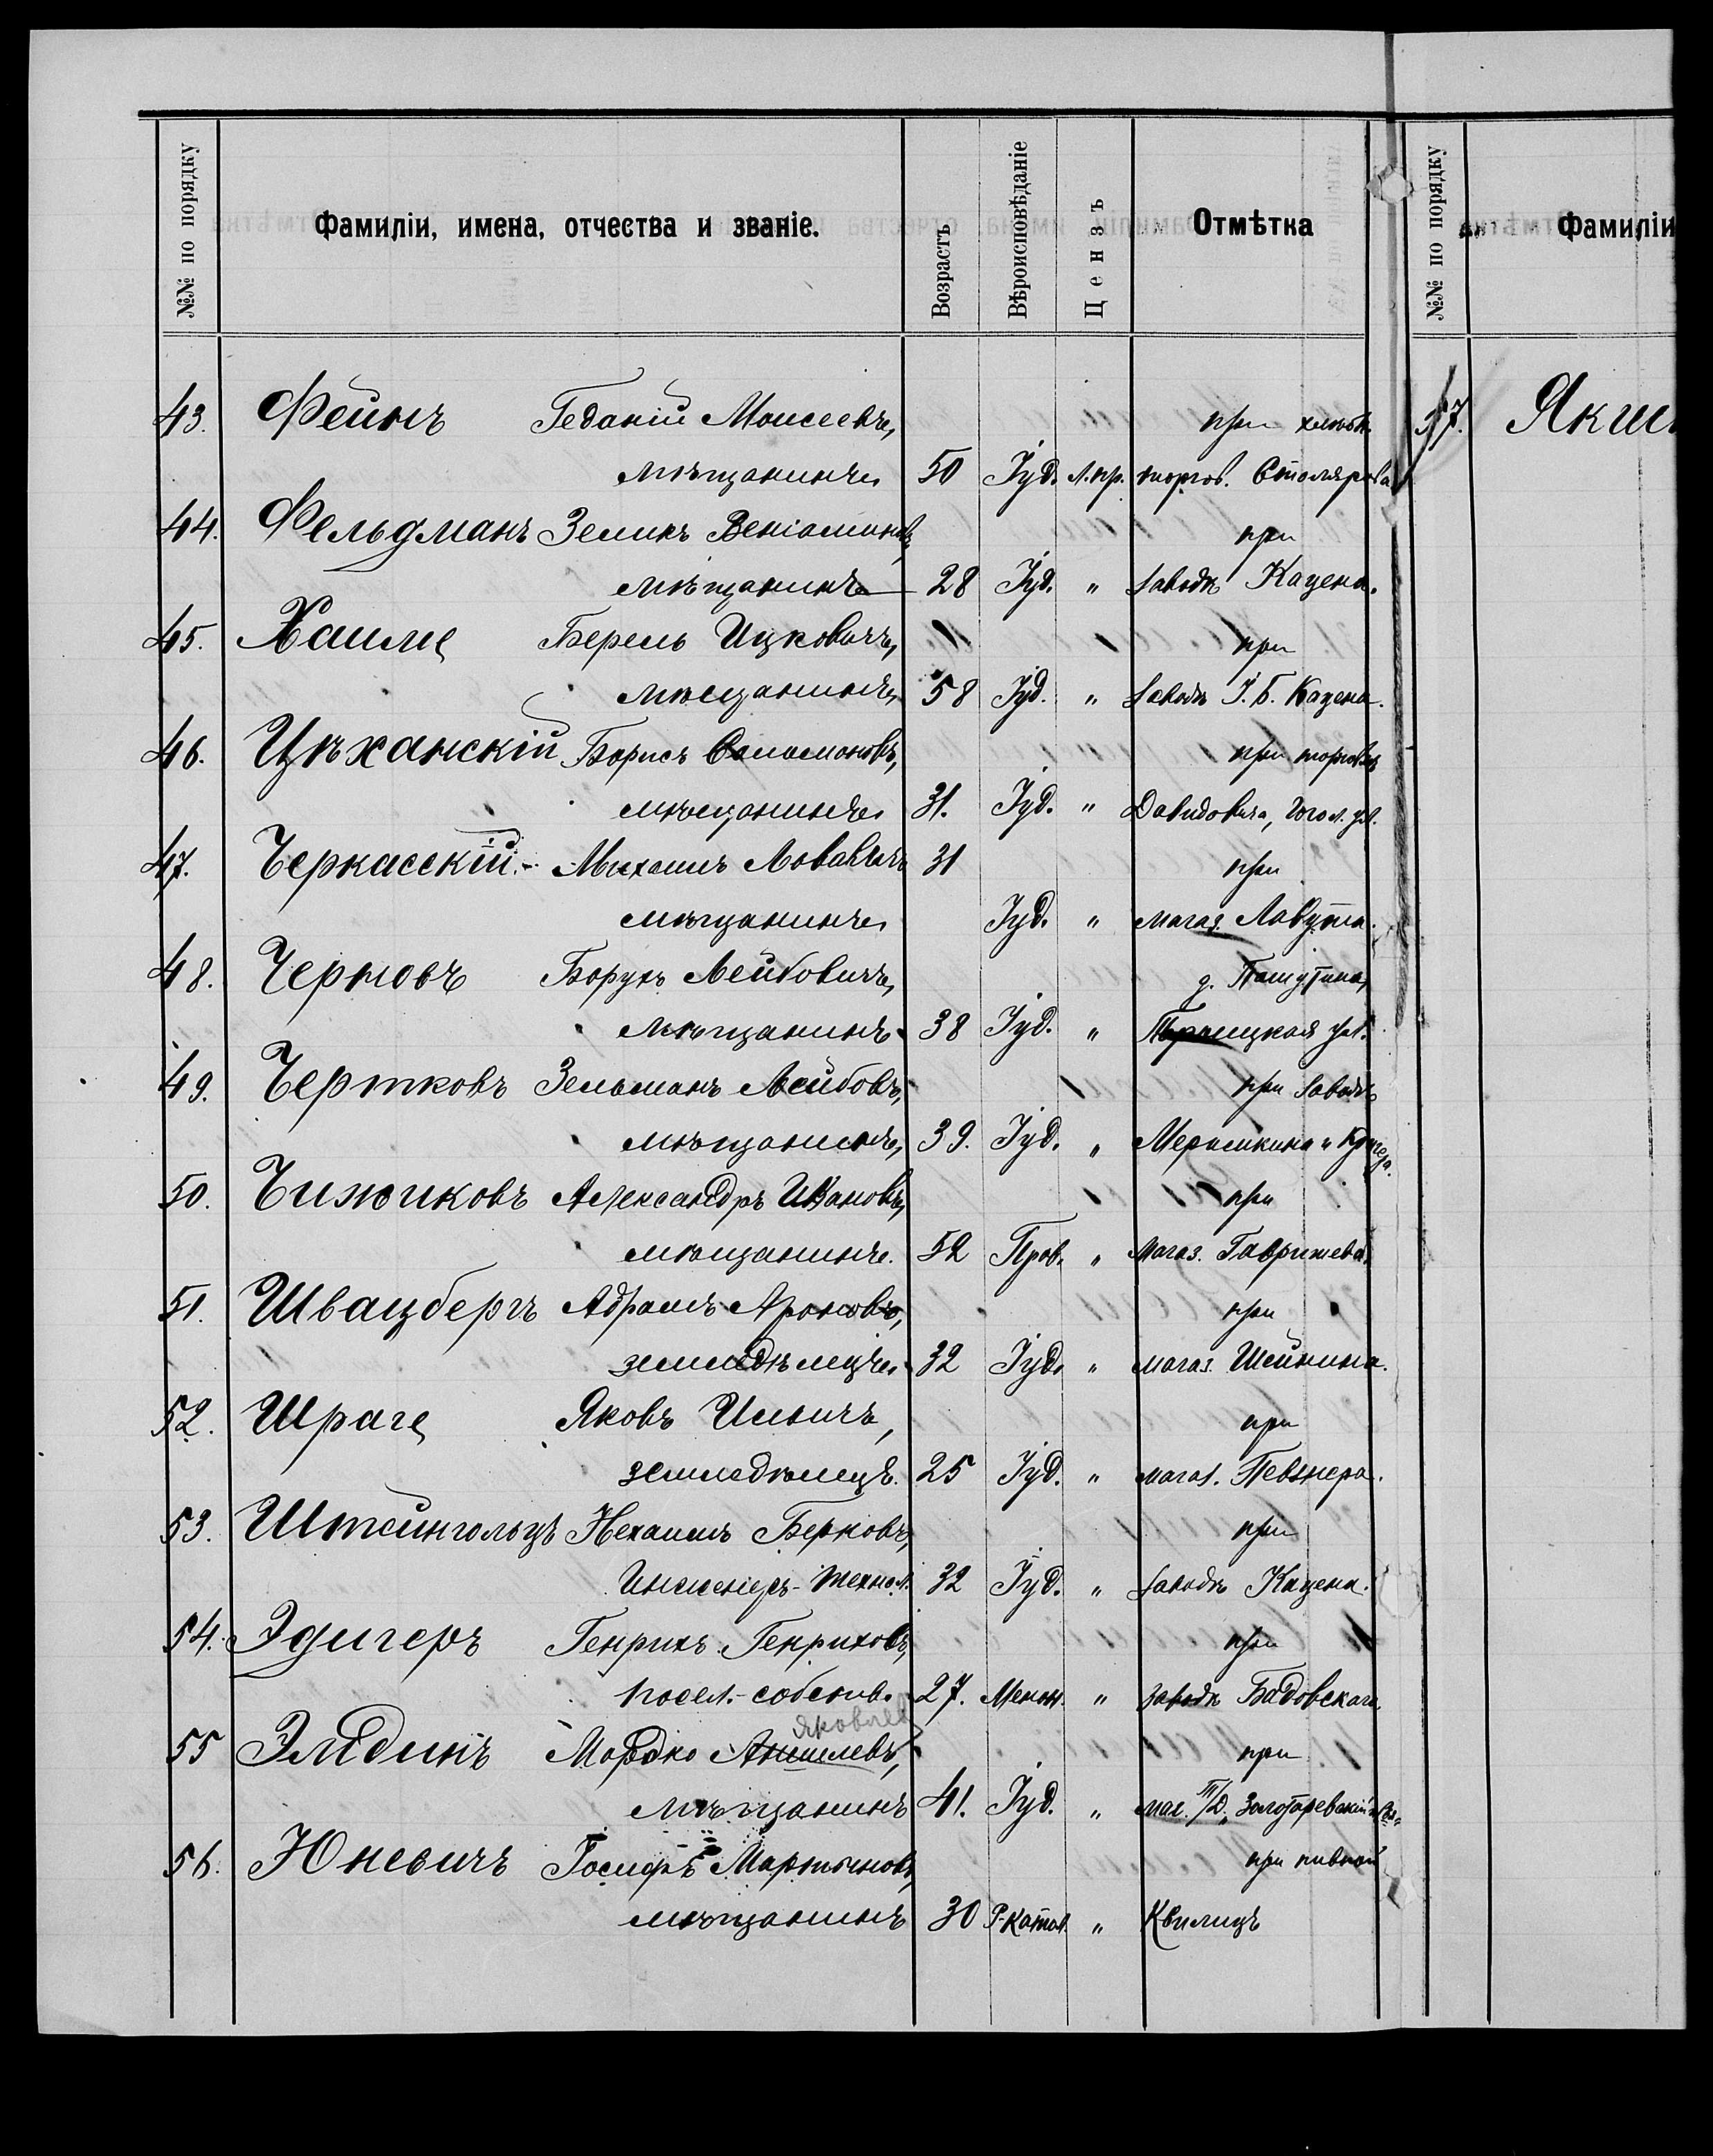 №№ по порядку Фамиліи, имена, отчества и званіе. Возрастъ Вѣроисповѣданіе Цензъ Отмѣтка №№ по порядку Фамиліи
43. Фейнъ Геданій Моисеевъ, при хлѣбн. 57.
мѣщанинъ 50 Іуд. Л.пр. торгов. Столярова
44. Фельдманъ Зеликъ Веніаминовъ, при
мѣщанинъ 28 Іуд. " заводѣ Кацена.
45. Хаиме Берель Ицковичъ, при
мѣщанинъ 58 Іуд. " заводѣ І. Б. Кацена.
46. Цѣханскій Борисъ Соломоновъ, при торговлѣ
мѣщанинъ 31. Іуд. " Давидовича, Гогол. ул.
47. Черкасскій Михаилъ 31 при
мѣщанинъ Іуд. " магаз. Лавута.
48. Черновъ Борухъ Лейбовичъ, д.
мѣщанинъ 38 Іуд. " Троицкая ул.
49. Чертковъ Зельманъ Лейбовъ, при заводѣ
мѣщанинъ, 39. Іуд. "
50. Чижиковъ Александръ Ивановъ, при
мѣщанинъ. 52 Прав. " магаз.
51. Швацбергъ Абрамъ Ароновъ, при
земледѣлецъ 32 Іуд. " магаз. Шейнина.
52. Шраге Яковъ Ильичъ, при
земледѣлецъ. 25 Іуд. " магаз. Певзнера.
53. Штейнгольцъ Нехаимъ Берковъ, при
Инженеръ-технол. 32 Іуд. " заводѣ Кацена.
54. Эдигеръ Генрихъ Генриховъ, при
посел.-собств. 27. Менон. " заводѣ Бадовскаго.
Яковлев
55 Элядинъ Мордко Аншелевъ, при
мѣщанинъ 41. Іуд. " маг. Т/Д.
56. Юневичъ Іосифъ Мартыновъ, при пивной
мѣщанинъ 30 Р-катол. " Квилицъ